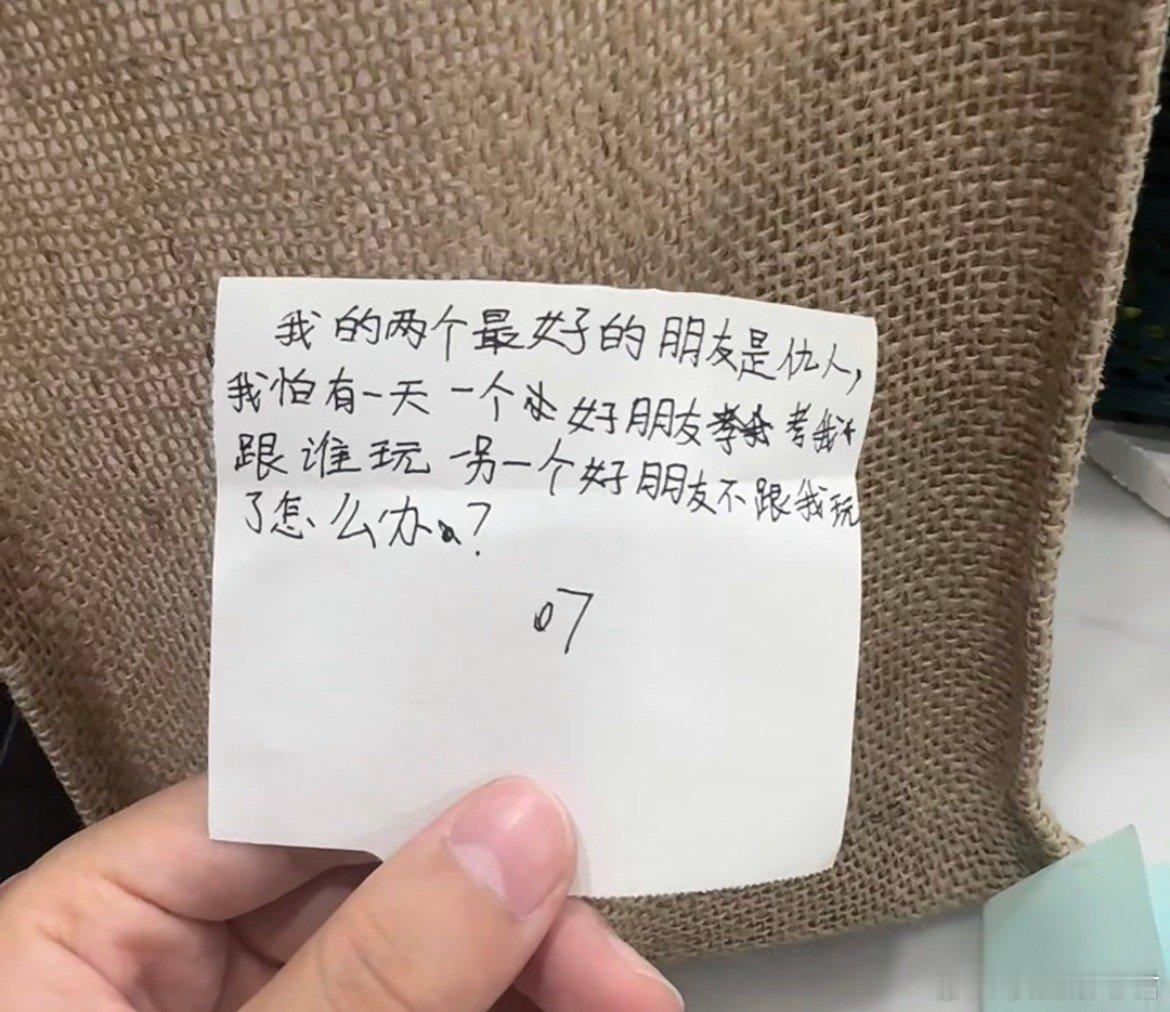 我的两个最好的朋友是仇人，
我怕有一天一个好朋友考我不
跟谁玩另一个好朋友不跟我玩
了怎么办？
07